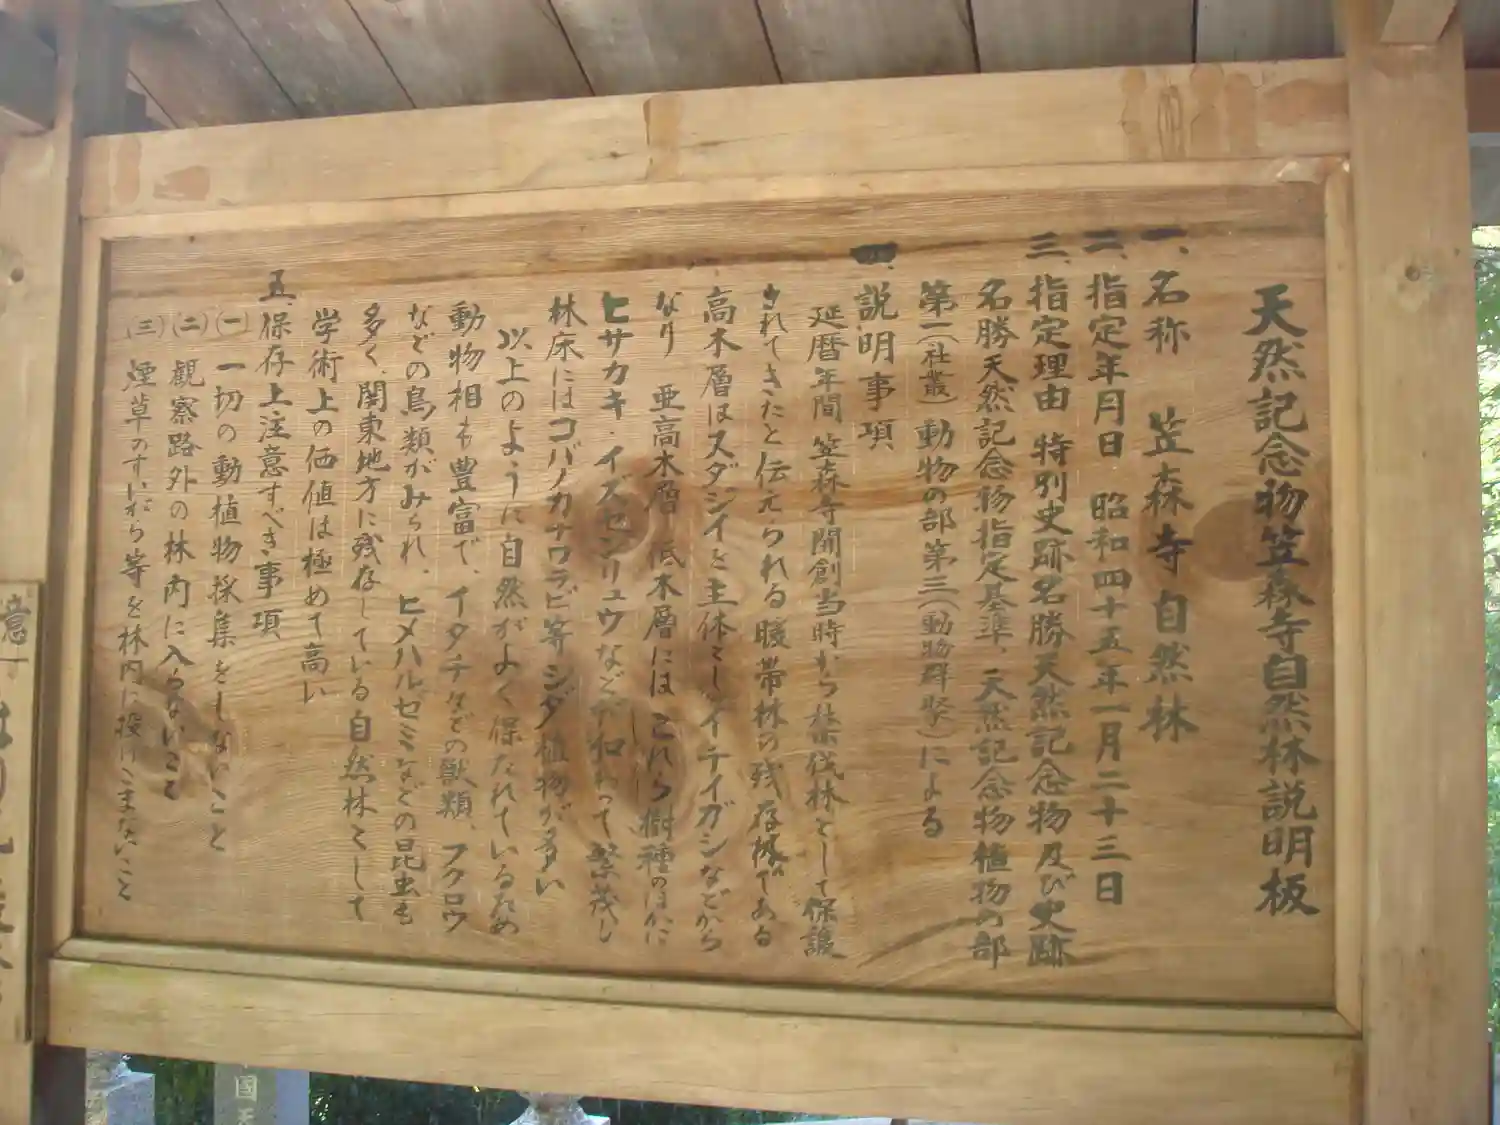 天然記念物笠森寺自然林説明板
一、名称　笠森寺自然林
二、指定年月日　昭和四十五年一月二十三日
三、指定理由　特別史跡名勝天然記念物及び史跡
名勝天然記念物指定基準、天然記念物植物の部
第二(社叢)動物の部第三(動物群聚)による
四、説明事項
延暦年間笠森寺開創当時から禁伐林として保護
されてきたと伝えられる暖帯林の残存林である
高木層はスダジイを主体としイチイガシなどから
なり　亜高木層・低木層にはこれら樹種のほかに
ヒサカキ・イズセンリョウなどが加わって繁茂し
林床にはコバノカナワラビ等シダ植物が多い
以上のように自然がよく保たれているため
動物相も豊富で、イタチなどの獣類、フクロウ
などの鳥類がみられ、ヒメハルゼミなどの昆虫も
多く、関東地方に残存している自然林として
学術上の価値は極めて高い
五、保存上注意すべき事項
(一)一切の動植物採集をしないこと
(二)観察路外の林内に入らないこと
(三)煙草のすいがら等を林内に投げこまないこと
意
國天